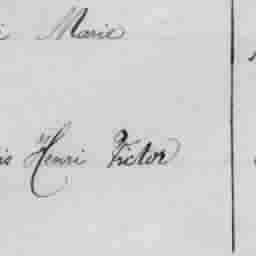 Marie
Henri Victor